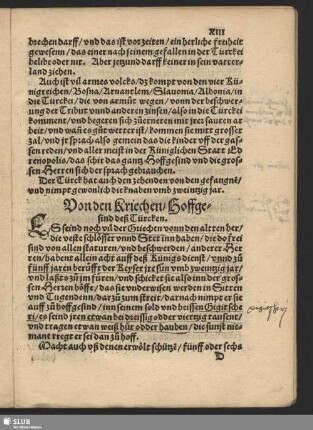 XIII
brechen darff/ vnd das ist vor zeiten/ ein herliche freiheit
gewesenn/ das einer nach seinem gefallen in der Türckei
belibe oder nit. Aber jetzund darff keiner in sein vatter-
land ziehen.
Auch ist vil armes volcks/ dz kompt von den vier Kü-
nigreichen/ Bosna/ Arnautlem/ Slauonia/ Albonia/ in
die Türckei/ die von armůt wegen/ vonn der beschwer-
ung der Tribut vnnd anderen zinsen/ also in die Türckei
komment/ vnd begeren sich zů erneren mit jrer sauren ar
beit/ vnd wañ es gůt wetter ist/ kommen sie mitt grosser
zal/ vnd jr sprach also gemein das die kinder vff der gas-
sen reden/ vnd aller meist in der Künigklichen Statt
renopolis/ das schir das gantz Hoffgesind vnd die gros-
sen Herren sich der sprach gebrauchen.
Der Türck hat auch den zehenden von den gefangnẽ/
vnd nimpt gewonlich die knaben vmb zweintzig jar.
Von den Kriechen/ Hoffge-
sind deß Türcken.
ES seind noch vil der Griechen vonn den alten her/
die veste schlösser vnnd Stett inn haben/ die do frei
sind von allen staturen/ vnd beschwerden/ anderer Bit
ren/ habent allein acht auff deß Künigs dienst/ vnnd zů
fünff jaren berüfft der Keyser jre sün vmb zweintzig jar/
vnd laßt s zů jm füren/ vnd schicket sie also inn der gros-
sen Herren höffe/ das sie vnderwisen werden in Sitten
vnd Tugendenn/ darzů zum streit/ darnach nimpt er sie
auff zů hoffgesind/ inn seinem sold vnd heissen Gigitsche
ri/ es seind jren etwan bei dreissig oder viertzig tausent/
vnd tragen etwan weiß hüt oder hauben/ die sunst nie-
mant tregt er sei dan zů hoff.
Macht auch vß denen erwölt schützẽ/ fünff oder sechs
D
SLUB
Wir führen Wissen.